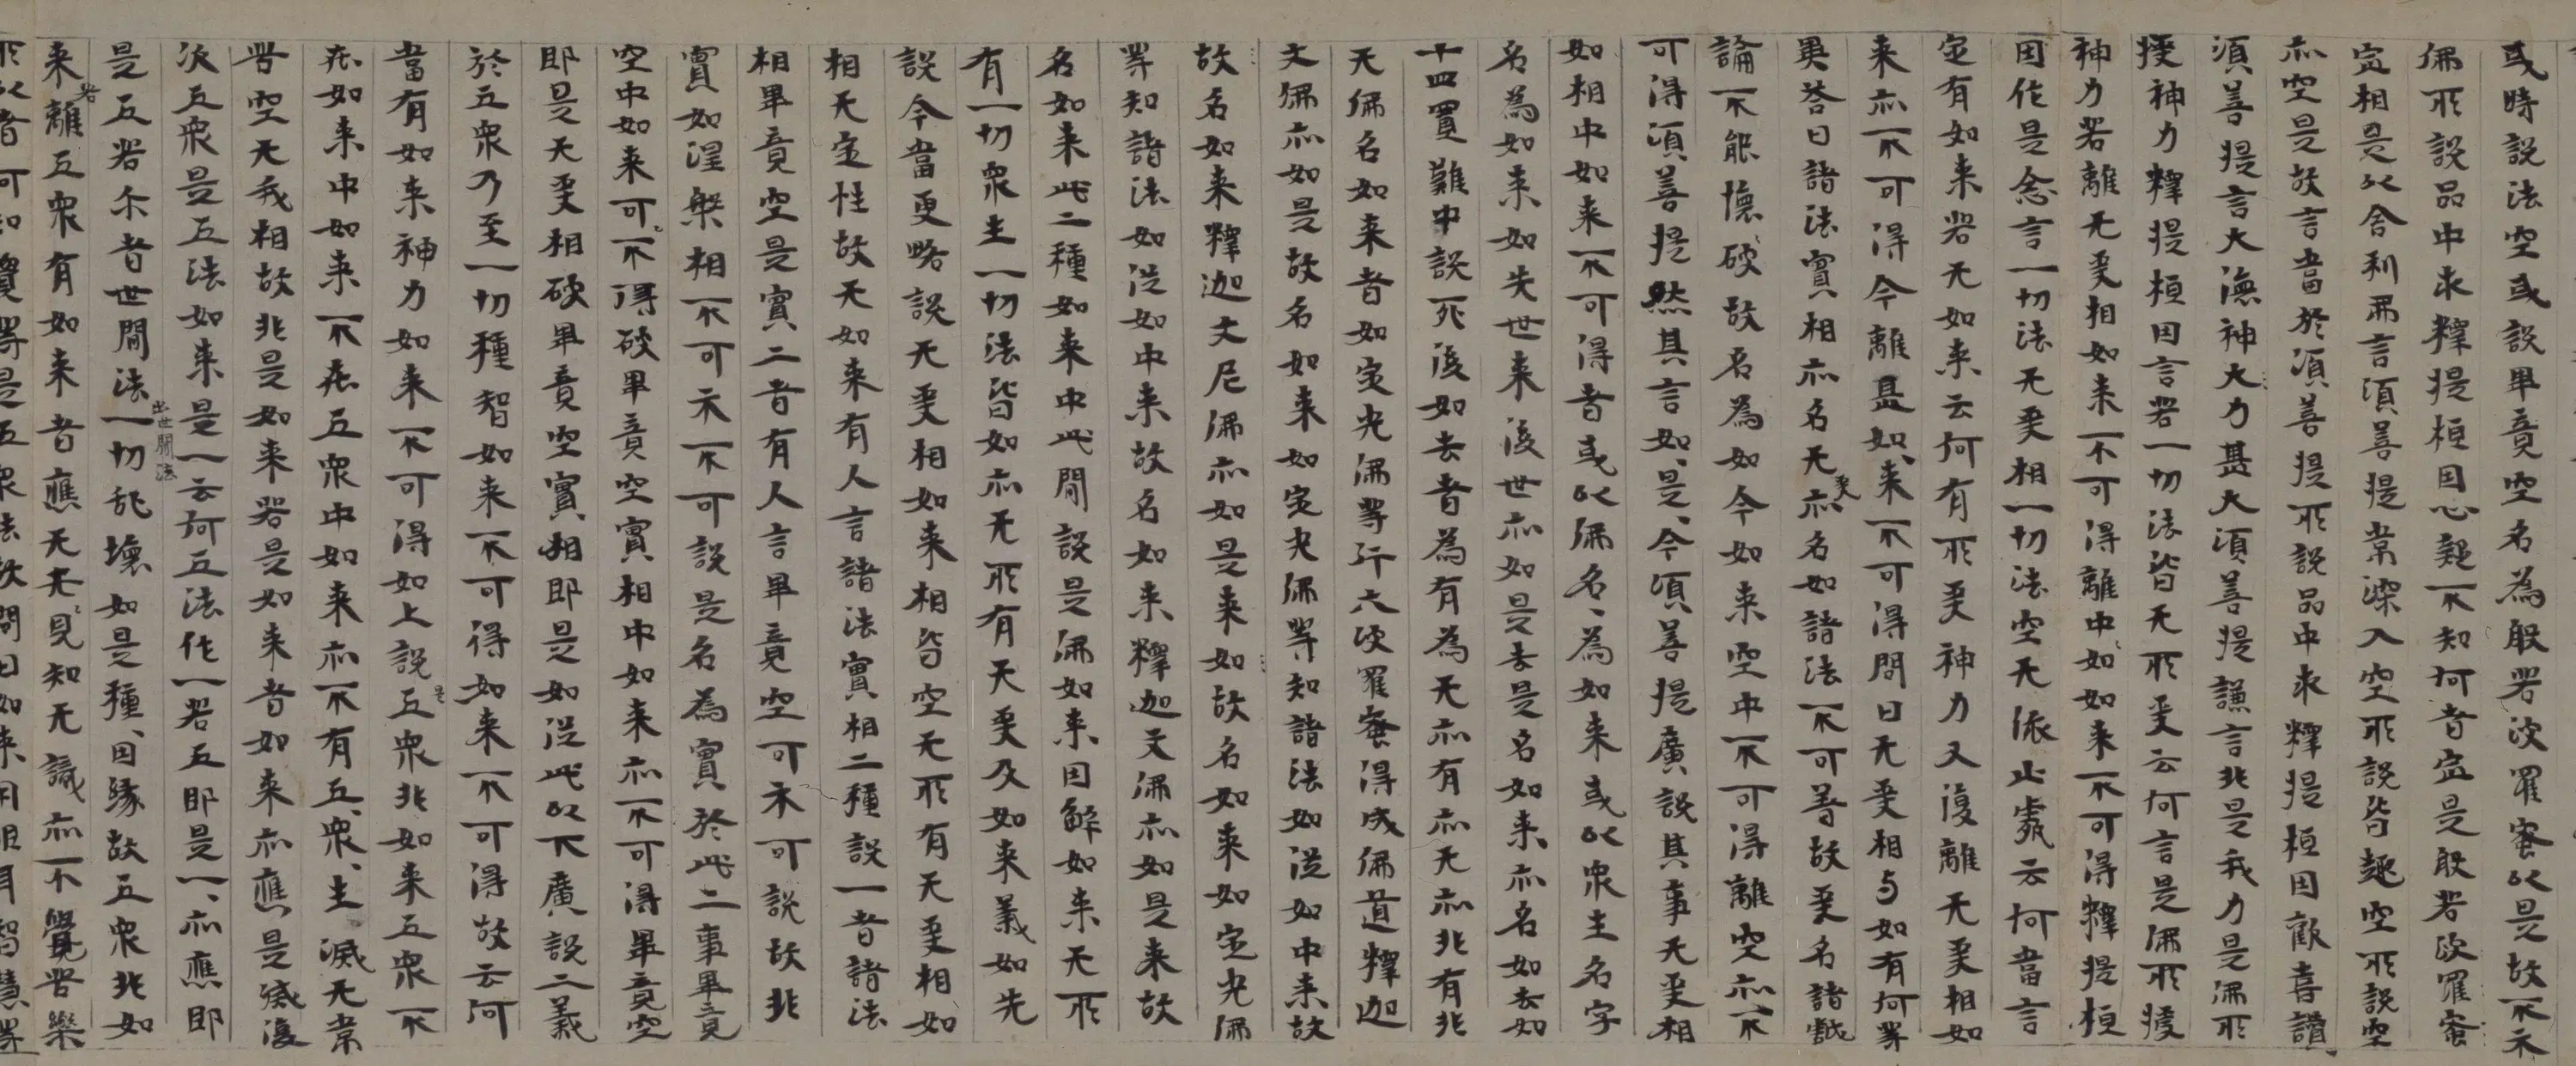 或時説法空或説畢竟空名為般若波羅蜜以是故不示
佛所説品中求釋提桓因心疑不知何者定是般若波羅蜜
定相是以舍利弗言須菩提常深入空所説皆趣空所説空
亦空是故言當於須菩提所説品中求釋提桓因歡喜讃
須善提言大德神大力甚大須菩提謙言非是我力是佛所
授神力釋提桓因言若一切法皆无所受云何言是佛所授
神力若離无受相如来不可得離中如如来不可得釋提桓
因作是念言一切法无受相一切法空无依止處云何當言
定有如来若无如来云何有所受神力又復離无受相如
来亦不可得今離是如来不可得問曰无受相与如有何等
異荅曰諸法實相亦名无受亦名如諸法不可著故受名諸戲
論不能懷破故名為如今如来空中不可得離空亦不
可得須菩提然其言如是今須菩提廣説其事无受相
如相中如来不可得者或以佛名為如来或以衆生名字
名為如来如先世来後世亦如是去是名如来亦名如去如
十四置難中説死後如去者為有為无亦有亦无亦非有非
无佛名如来者如定光佛等行六波羅蜜得成佛道釋迦
文佛亦如是故名如来如定光佛等知諸法如從如中来故
故名如来釋迦文尼佛亦如是来如故名如来如定光佛
等知諸法如從如中来故名如来釋迦文佛亦如是来故
名如来此二種如来中此間説是佛如来因解如来无所
有一切衆生一切法皆如亦无所有无受及如来義如先
説今當更略説无受相如来相皆空无所有无受相如
相无定性故无如来有人言諸法實相二種説一者諸法
相畢竟空是實二者有人言畢竟空可示可説故非
實如涅槃相不可示不可説是名為實於此二事畢竟
空中如来可不得破畢竟空實相中如来亦不可得畢竟空
即是无受相破畢竟空實相即是如從此以下廣説二義
於五衆乃至一切種智如来不可得如来不可得故云何
當有如来神力如来不可得如上説是五衆非如来五衆不
在如来中如来不在五衆中如来亦不有五衆生滅无常
苦空无我相故非是如来若是如来者如来亦應是滅復
次五衆是五法如来是一云何五法作一若五即是一亦應即
是五若尓者世間法出世間法一切乱壞如是種因縁故五衆非如
来若離五衆有如来者應无无見知无識亦不覺苦樂